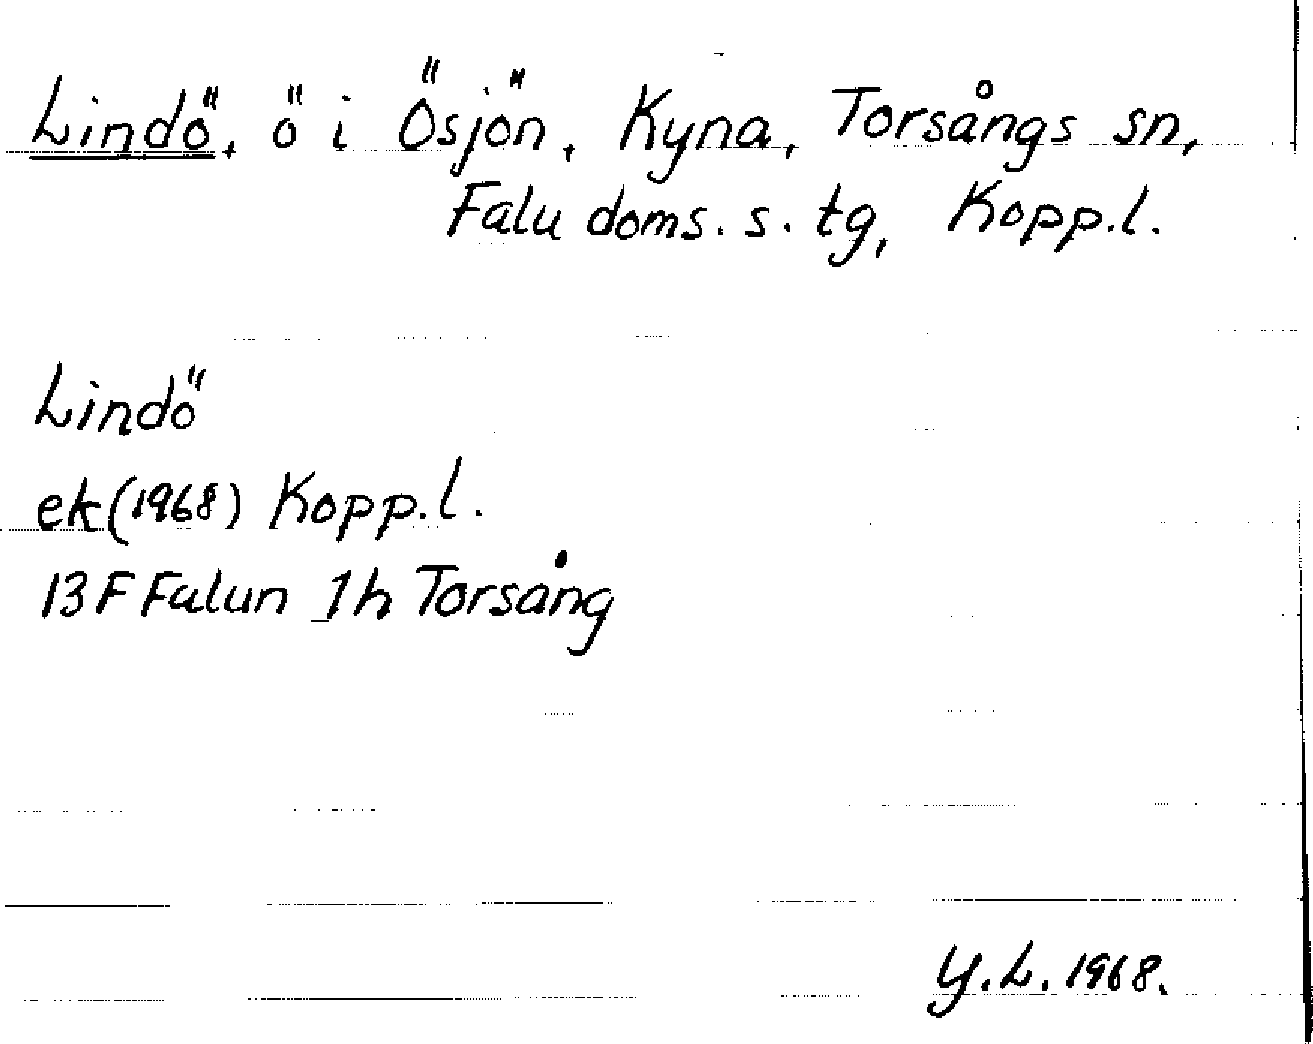 Lindö, ö i Ösjön, Kyna, Torsångs sn,
Falu doms. s. tg, Kopp.l.
Lindö
ek(1968) Kopp.l.
13F Falun 1h Torsång
Y.L. 1968.